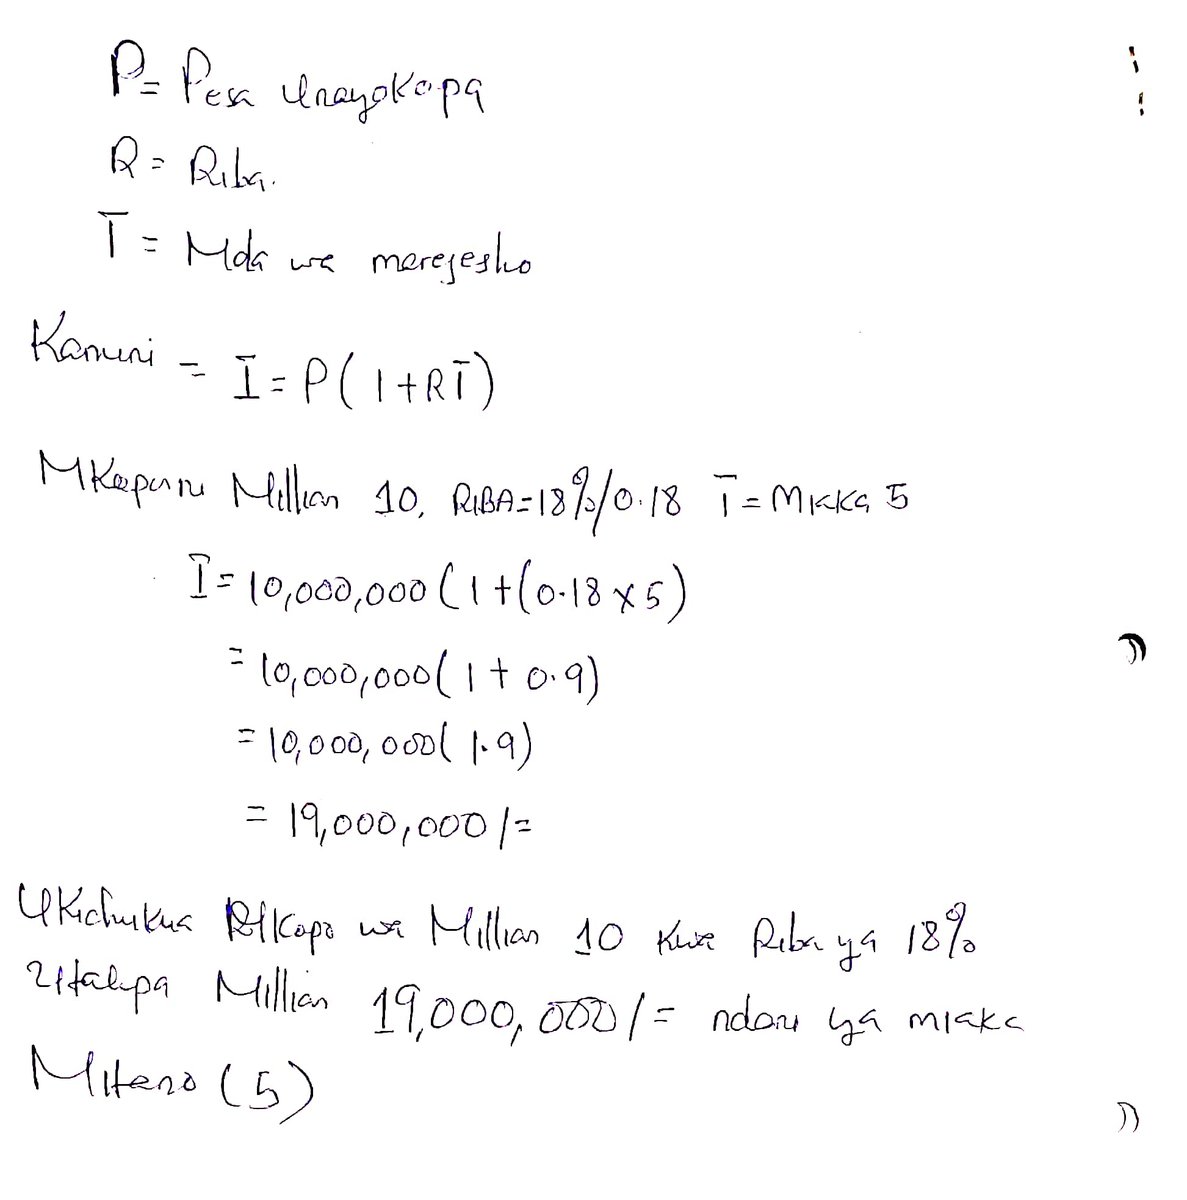 P= Pesa Unayokopa
R= Riba.
T = Mda wa marejesho
Kanuni = I=P(1+RT)
Million 10, RIBA=18%/0.18 T=Miaka 5
I=10,000,000(1+(0.18×5)
=10,000,000(1+0.9)
=10,000,000(1.9)
=19,000,000/=
Ukichukua Mkopo wa Million 10 Kwa Riba ya 18%
Utalipa Million 19,000,000/= ndani ya miaka
Mitano (5)